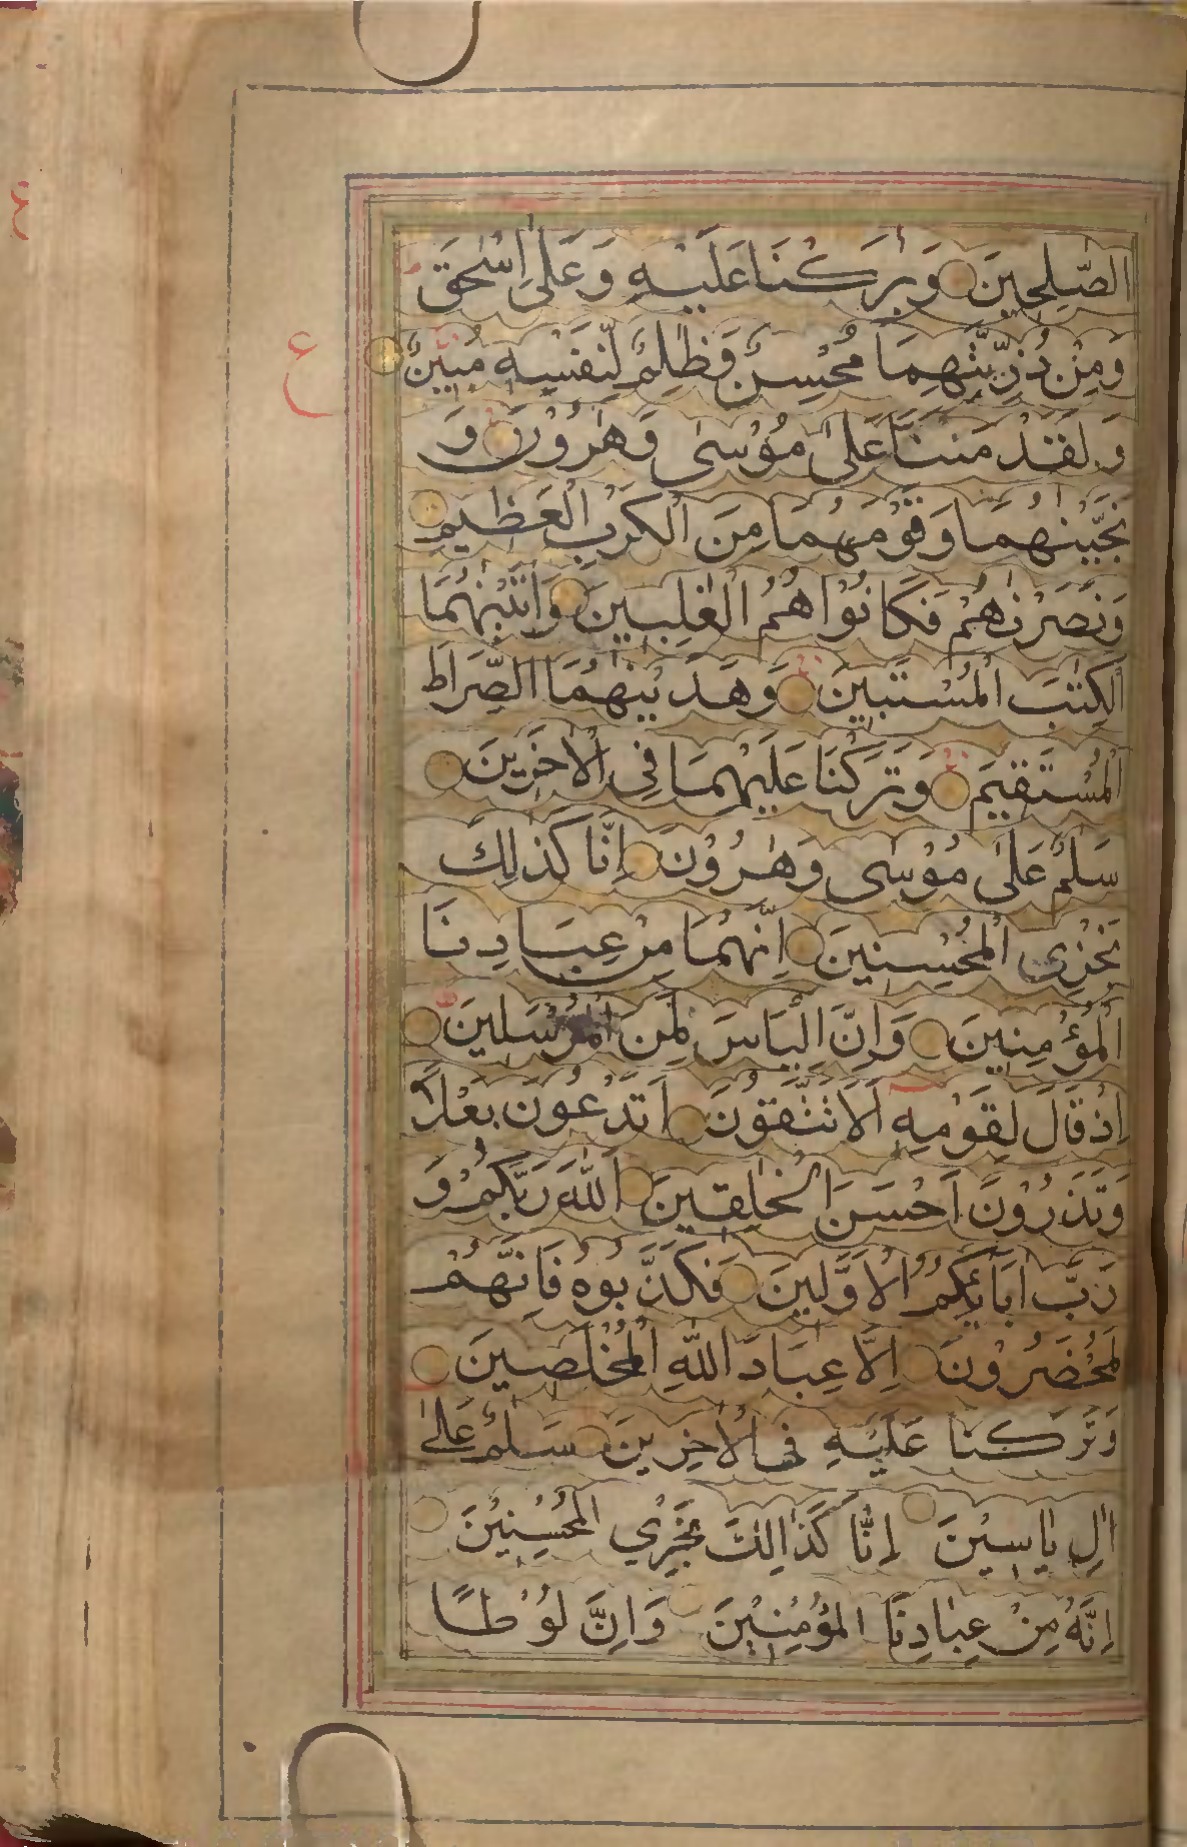 الصّٰلِحِيْنَ وَبٰرَكْنَا عَلَيْهِ وَعَلٰى اِسْحٰقَ
وَمِنْ ذُرِّيَّتِهِمَا مُحْسِنٌ وَّظَالِمٌ لِّنَفْسِهٖ مُبِيْنٌ
ع
وَلَقَدْ مَنَنَّا عَلٰى مُوْسٰى وَهٰرُوْنَ وَ
نَجَّيْنٰهُمَا وَقَوْمَهُمَا مِنَ الْكَرْبِ الْعَظِيْمِ
وَنَصَرْنٰهُمْ فَكَانُوْا هُمُ الْغٰلِبِيْنَ وَاٰتَيْنٰهُمَا
الْكِتٰبَ الْمُسْتَبِيْنَ وَهَدَيْنٰهُمَا الصِّرَاطَ
الْمُسْتَقِيْمَ وَتَرَكْنَا عَلَيْهِمَا فِى الْاٰخِرِيْنَ
سَلٰمٌ عَلٰى مُوْسٰى وَهٰرُوْنَ اِنَّا كَذٰلِكَ
نَجْزِى الْمُحْسِنِيْنَ اِنَّهُمَا مِنْ عِبَادِنَا
الْمُؤْمِنِيْنَ وَاِنَّ اِلْيَاسَ لَمِنَ الْمُرْسَلِيْنَ
اِذْ قَالَ لِقَوْمِهٖ اَلَا تَتَّقُوْنَ اَتَدْعُوْنَ بَعْلًا
وَّتَذَرُوْنَ اَحْسَنَ الْخٰلِقِيْنَ اللّٰهَ رَبَّكُمْ وَ
رَبَّ اٰبَآئِكُمُ الْاَوَّلِيْنَ فَكَذَّبُوْهُ فَاِنَّهُمْ
لَمُحْضَرُوْنَ اِلَّا عِبَادَ اللّٰهِ الْمُخْلَصِيْنَ
وَتَرَكْنَا عَلَيْهِ فِى الْاٰخِرِيْنَ سَلٰمٌ عَلٰى
اٰلِ يَاسِيْنَ اِنَّا كَذَالِكَ نَجْزِي الْمُحْسِنِيْنَ
اِنَّهُ مِنْ عِبَادِنَا الْمُؤْمِنِيْنَ وَاِنَّ لُوْطًا